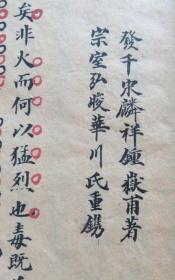 發千宋麟祥鍾嶽甫著
宗室弘晙華川氏重鐫
矣非火而何以猛烈也毒既